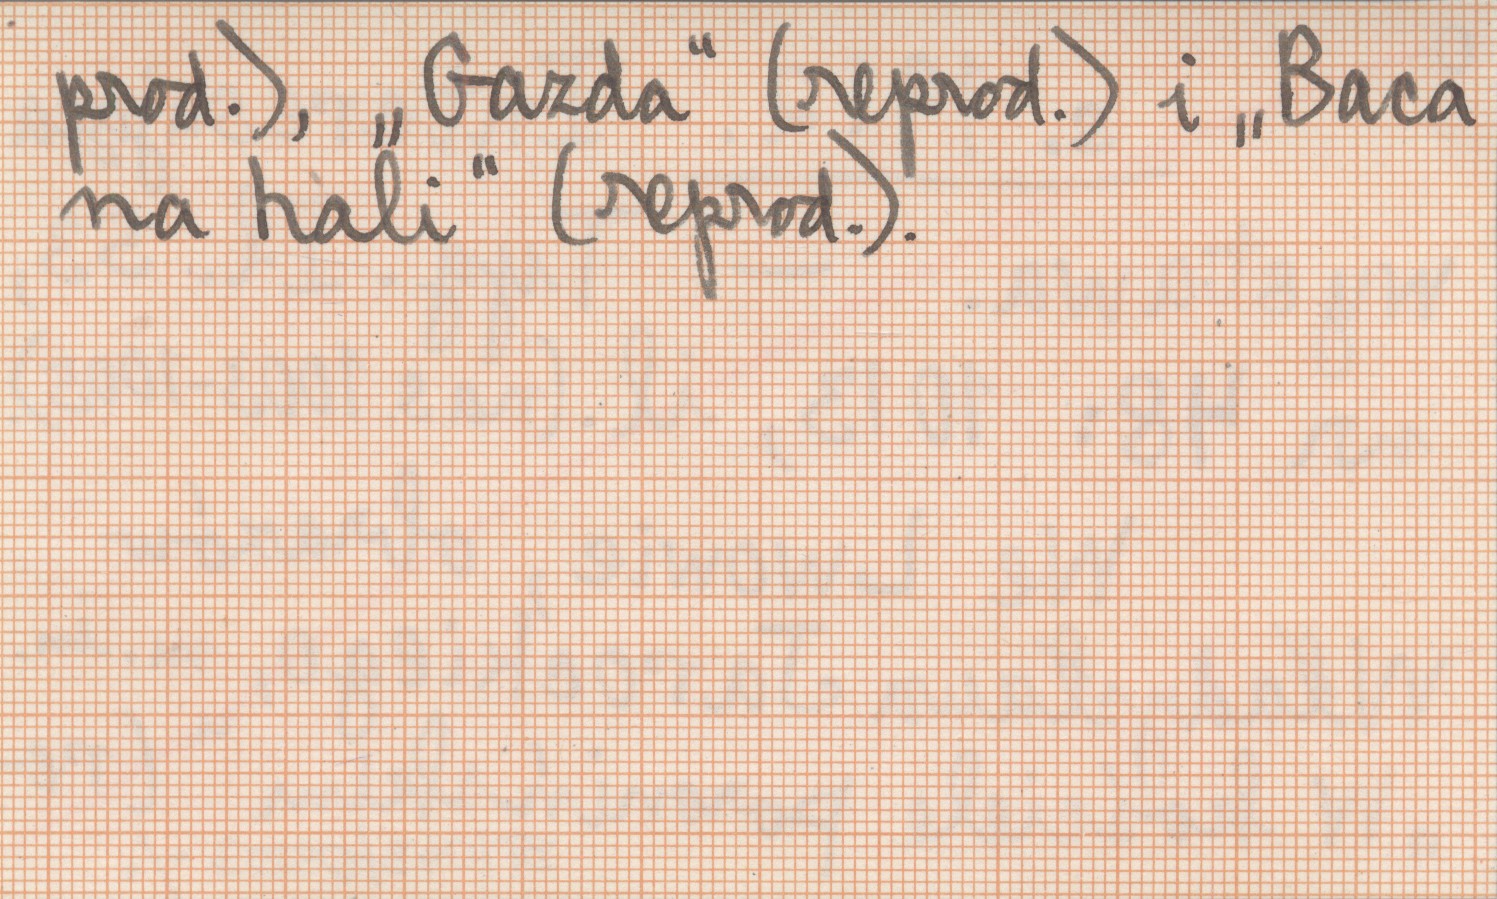 prod.), „Gazda“ (reprod.) i „Baca
na hali“ (reprod.).